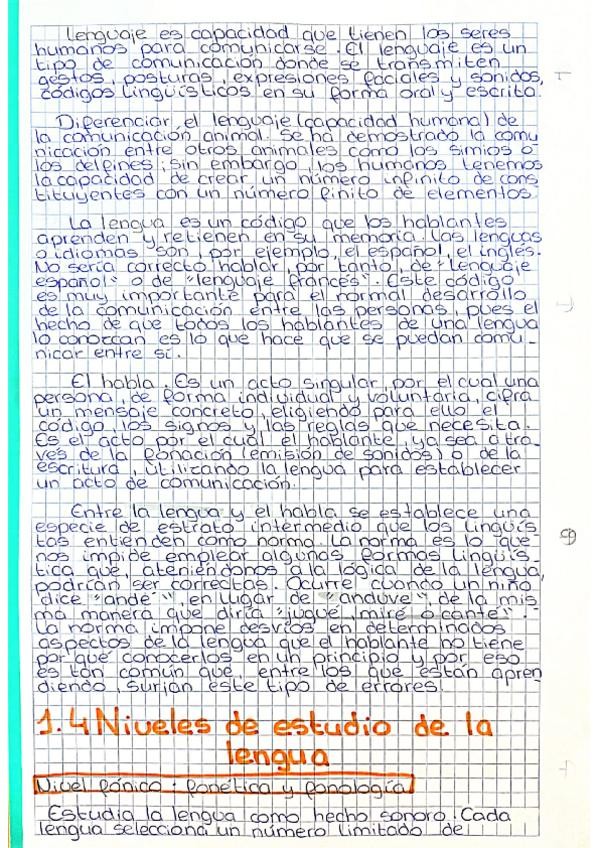 Lenguaje es capacidad que tienen los seres
humanos para comunicarse. El lenguaje es un
tipo de comunicación donde se transmiten
gestos, posturas, expresiones faciales y sonidos,
códigos lingüísticos en su forma oral y escrita.
Diferenciar el lenguaje (capacidad humana) de
la comunicación animal. Se ha demostrado la comu
nicación entre otros animales como los simios o
los delfines; sin embargo, los humanos tenemos
la capacidad de crear un número infinito de cons
tituyentes con un número finito de elementos.
La lengua es un código que los hablantes
aprenden y retienen en su memoria. Las lenguas
o idiomas son, por ejemplo, el español, el inglés.
No sería correcto hablar, por tanto, de "lenguaje
español" o de "lenguaje francés". Este código
es muy importante para el normal desarrollo
de la comunicación entre las personas, pues el
hecho de que todos los hablantes de una lengua
lo conozcan es lo que hace que se puedan comu-
nicar entre sí.
El habla. Es un acto singular, por el cual una
persona, de forma individual y voluntaria, cifra
un mensaje concreto, eligiendo para ello el
código, los signos y las reglas que necesita.
Es el acto por el cual el hablante, ya sea a tra
vés de la fonación (emisión de sonidos) o de la
escritura, utilizando la lengua para establecer
un acto de comunicación.
Entre la lengua y el habla se establece una
especie de estrato intermedio que los lingüis
tas entienden como norma. La norma es lo que
nos impide emplear algunas formas lingüís
tica que, ateniéndonos a la lógica de la lengua,
podrían ser correctas. Ocurre cuando un niño
dice "andé", en lugar de "anduve", de la mis
ma manera que diría "jugué, miré o canté".
La norma impone desvíos en determinados
aspectos de la lengua que el hablante no tiene
por qué conocerlos en un principio y por eso
es tan común que, entre los que están apren
diendo, surjan este tipo de errores.
1.4 Niveles de estudio de la
lengua
Nivel fónico: fonética y fonología
Estudia la lengua como hecho sonoro. Cada
lengua selecciona un número limitado de